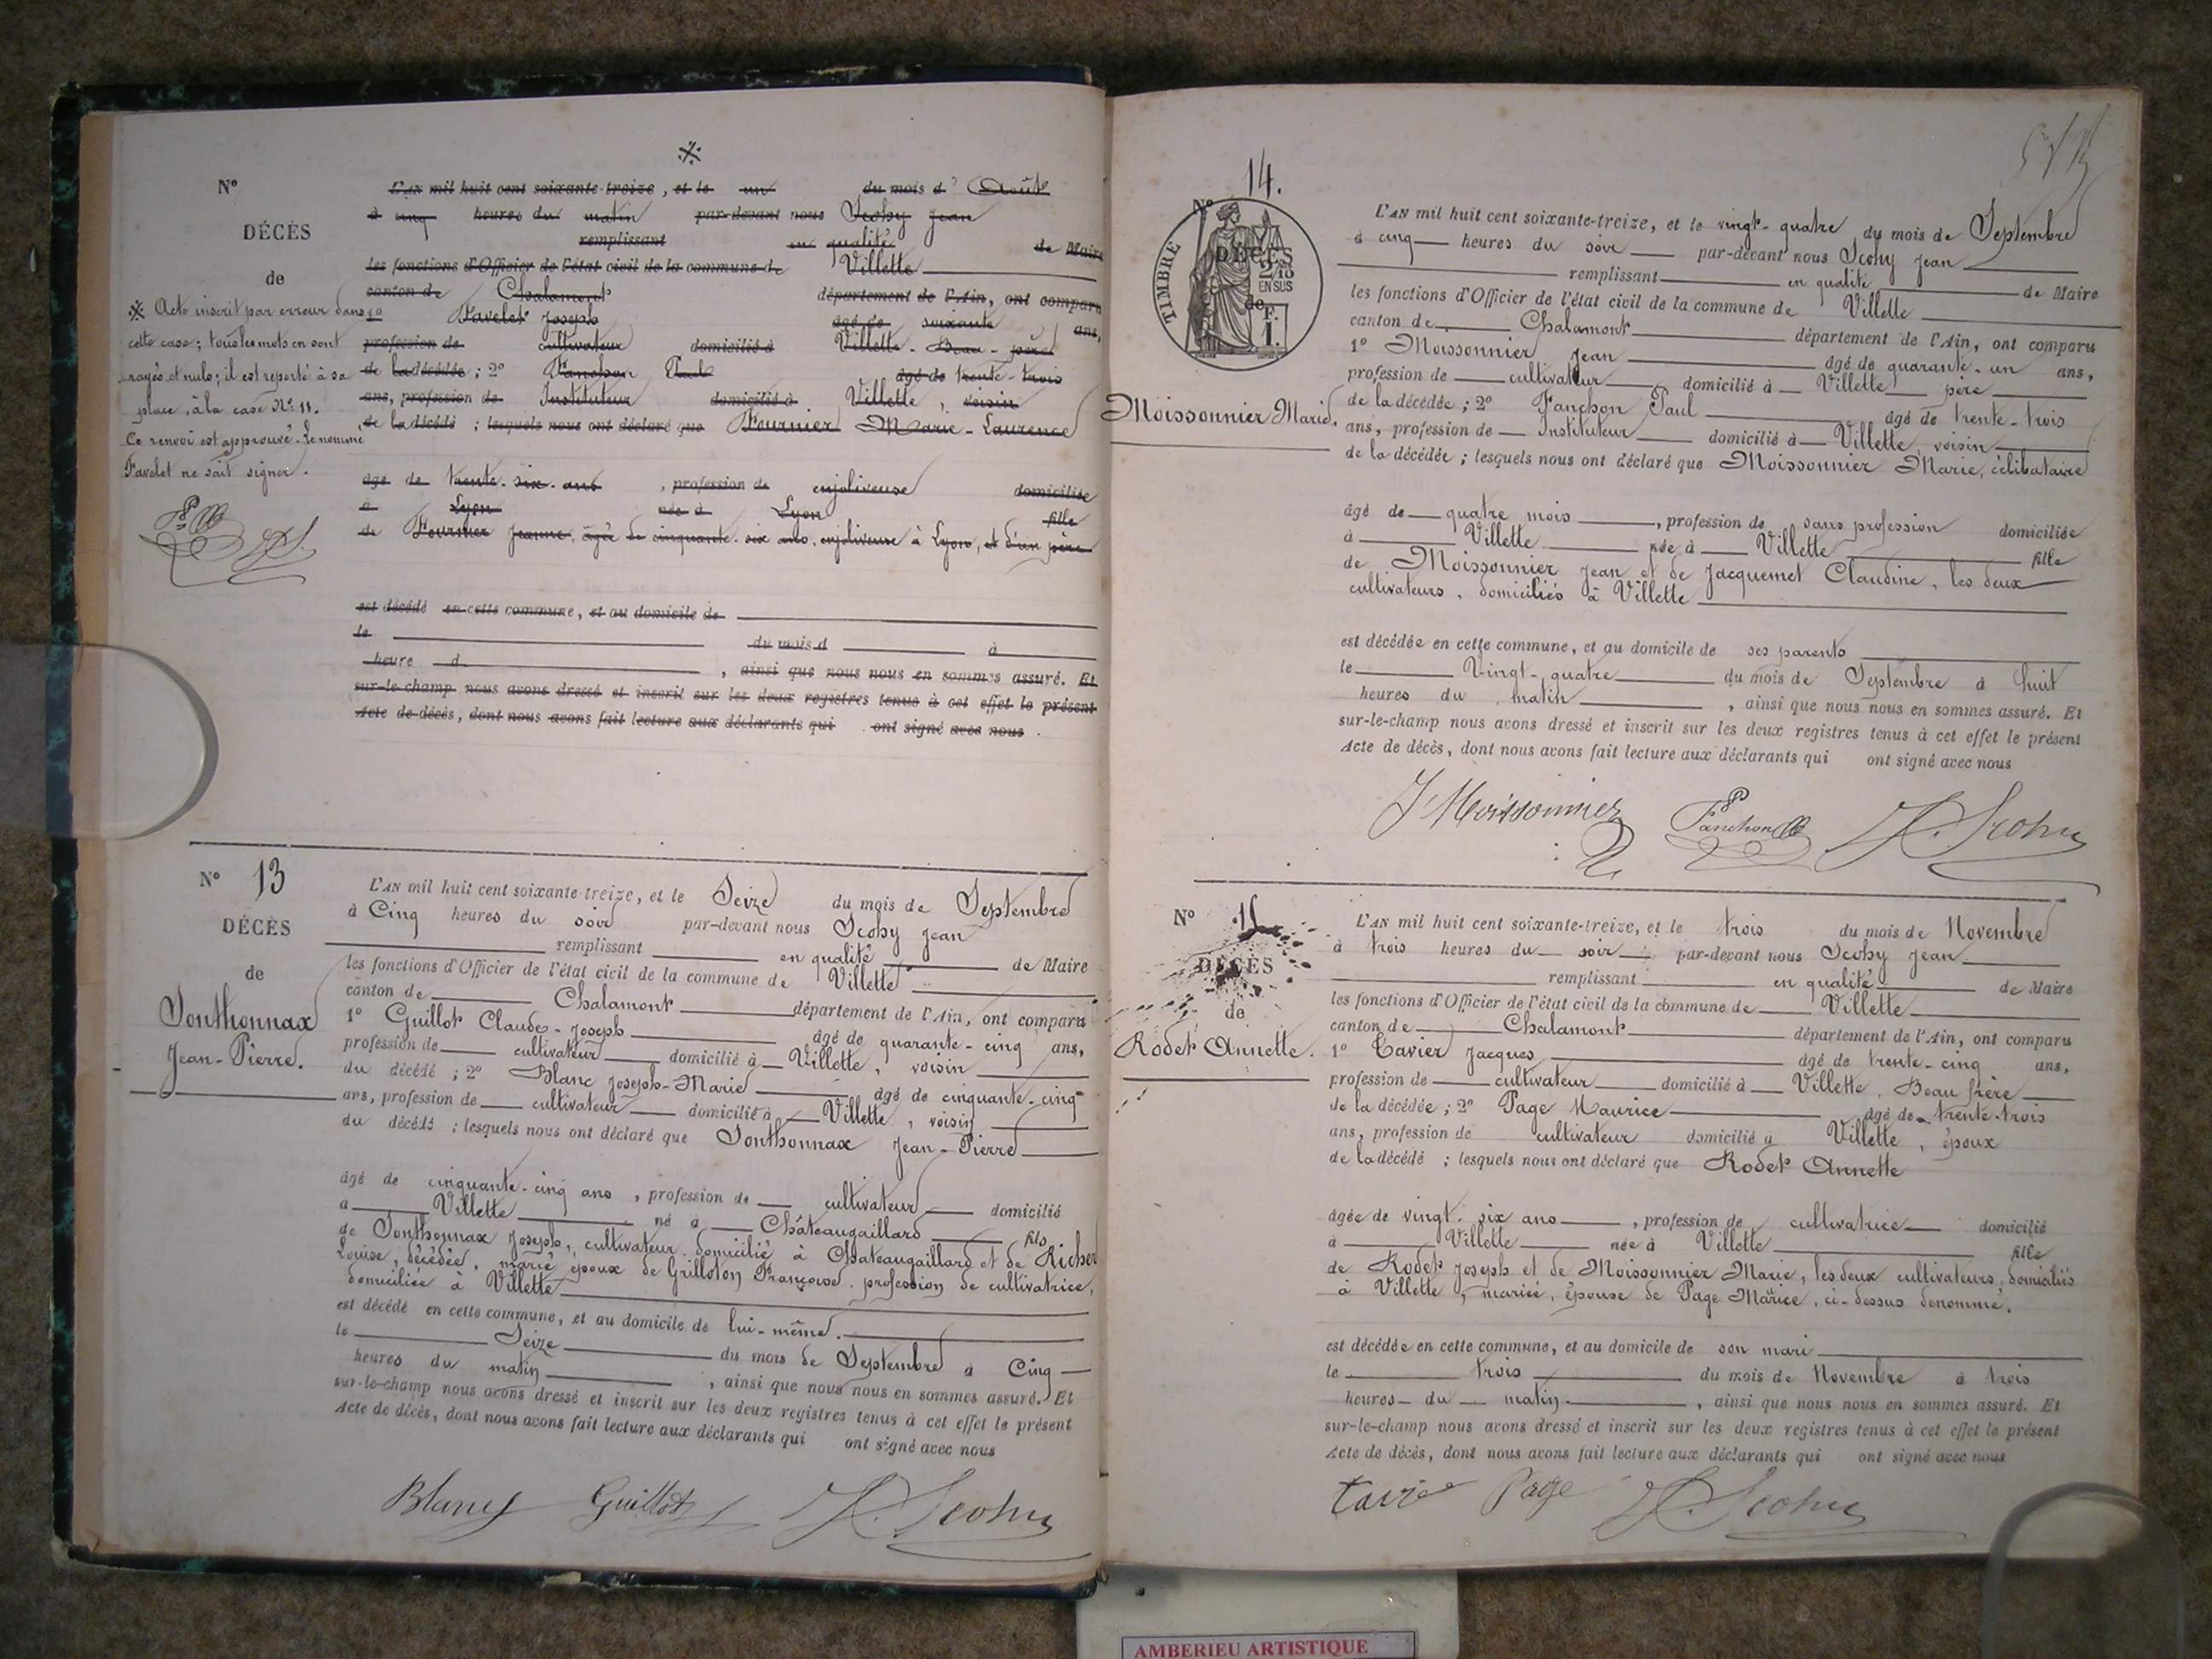 ※
N°
DÉCÈS
de
※ Acte inscrit par erreur dans
cette case; tous les mots en sont
rayés et nuls; il est reporté à sa
place, à la case N° 11.
Ce renvoi est approuvé. Le nommé
Favelet ne sait signer.
L'AN mil huit cent soixante-treize, et le un du mois d'Août
à cinq heures du matin par-devant nous Scohy Jean
remplissant en qualité de Maire
les fonctions d'Officier de l'état civil de la commune de Villette
canton de Chalamont département de l'Ain, ont comparu
1° Favelet Joseph âgé de soixante ans,
profession de cultivateur domicilié à Villette - Beau-père
de la décédée; 2° Fanchon Paul âgé de trente-trois
ans, profession de Instituteur domicilié à Villette, voisin
de la décédé; lesquels nous ont déclaré que Fournier Marie-Laurence
âgé de trente-six ans, profession de enjoliveuse domiciliée
à Lyon née à Lyon fille
de Fournier Jeanne, âgée de cinquante-six ans, enjoliveuse à Lyon, et d'un père
est décédé en cette commune, et au domicile de
le du mois d à
heure d , ainsi que nous nous en sommes assuré. Et
sur-le-champ nous avons dressé et inscrit sur les deux registres tenus à cet effet le présent
Acte de décès, dont nous avons fait lecture aux déclarants qui ont signé avec nous.
N° 13
DÉCÈS
de
Sonthonnax
Jean-Pierre.
L'AN mil huit cent soixante-treize, et le Seize du mois de Septembre
à Cinq heures du soir par-devant nous Scohy Jean
remplissant en qualité de Maire
les fonctions d'Officier de l'état civil de la commune de Villette
canton de Chalamont département de l'Ain, ont comparu
1° Guillot Claude-Joseph âgé de quarante-cinq ans,
profession de cultivateur domicilié à Villette, voisin
du décédé; 2° Blanc Joseph-Marie âgé de cinquante-cinq
ans, profession de cultivateur domicilié à Villette, voisin
du décédé; lesquels nous ont déclaré que Sonthonnax Jean-Pierre
âgé de cinquante-cinq ans, profession de cultivateur domicilié
à Villette né à Châteaugaillard fils
de Sonthonnax Joseph, cultivateur domicilié à Chateaugaillard et de Richer
Louise, décédée, marié époux de Grilloton Françoise, profession de cultivatrice,
domiciliée à Villette
est décédé en cette commune, et au domicile de lui-même.
le Seize du mois de Septembre à Cinq
heures du matin, ainsi que nous nous en sommes assuré. Et
sur-le-champ nous avons dressé et inscrit sur les deux registres tenus à cet effet le présent
Acte de décès, dont nous avons fait lecture aux déclarants qui ont signé avec nous
Blanc Guillot J. Scohy
N° 14.
TIMBRE
2/10
EN SUS
F.
1.
DÉCÈS
de
Moissonnier Marie.
L'AN mil huit cent soixante-treize, et le vingt-quatre du mois de Septembre
à cinq heures du soir par-devant nous Scohy Jean
remplissant en qualité de Maire
les fonctions d'Officier de l'état civil de la commune de Villette
canton de Chalamont département de l'Ain, ont comparu
1° Moissonnier Jean âgé de quarante-un ans,
profession de cultivateur domicilié à Villette père
de la décédée; 2° Fanchon Paul âgé de trente-trois
ans, profession de Instituteur domicilié à Villette, voisin
de la décédée; lesquels nous ont déclaré que Moissonnier Marie, célibataire
âgé de quatre mois, profession de sans profession domiciliée
à Villette née à Villette fille
de Moissonnier Jean et de Jacquemet Claudine, les deux
cultivateurs, domiciliés à Villette
est décédée en cette commune, et au domicile de ses parents
le Vingt-quatre du mois de Septembre à huit
heures du matin, ainsi que nous nous en sommes assuré. Et
sur-le-champ nous avons dressé et inscrit sur les deux registres tenus à cet effet le présent
Acte de décès, dont nous avons fait lecture aux déclarants qui ont signé avec nous
J Moissonnier Fanchon J. Scohy
N° 15
DÉCÈS
de
Rodet Annette.
L'AN mil huit cent soixante-treize, et le trois du mois de Novembre
à trois heures du soir par-devant nous Scohy Jean
remplissant en qualité de Maire
les fonctions d'Officier de l'état civil de la commune de Villette
canton de Chalamont département de l'Ain, ont comparu
1° Tavier Jacques âgé de trente-cinq ans,
profession de cultivateur domicilié à Villette, Beau frère
de la décédée; 2° Page Maurice âgé de trente-trois
ans, profession de cultivateur domicilié à Villette, époux
de la décédé; lesquels nous ont déclaré que Rodet Annette
âgée de vingt-six ans, profession de cultivatrice domicilié
à Villette née à Villette fille
de Rodet Joseph et de Moissonnier Marie, les deux cultivateurs, domiciliés
à Villette, mariée, épouse de Page Maurice, ci-dessus dénommé.
est décédée en cette commune, et au domicile de son mari
le trois du mois de Novembre à trois
heures du matin, ainsi que nous nous en sommes assuré. Et
sur-le-champ nous avons dressé et inscrit sur les deux registres tenus à cet effet le présent
Acte de décès, dont nous avons fait lecture aux déclarants qui ont signé avec nous
Tavier Page J. Scohy
AMBERIEU ARTISTIQUE